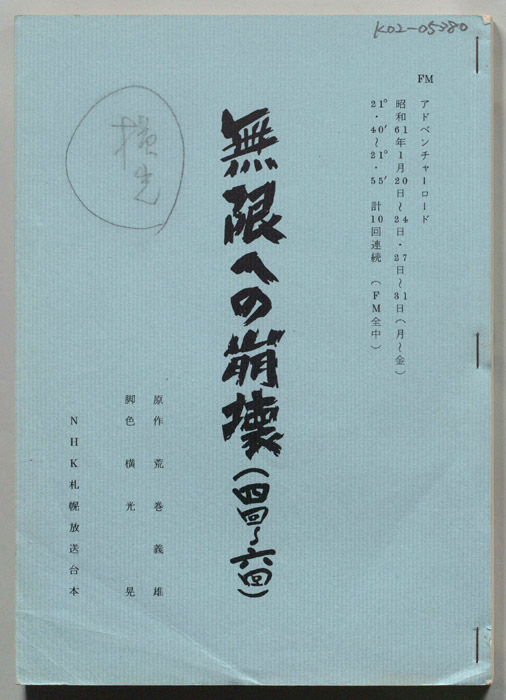 K02-05380
FM
アドベンチャーロード
昭和61年1月20日〜24日・27日〜31日(月〜金)
21°・40′〜21°・55′ 計10回連続 (FM全中)
無限への崩壊(四回〜六回)
原作 荒巻義雄
脚色 横光晃
NHK札幌放送台本
横光